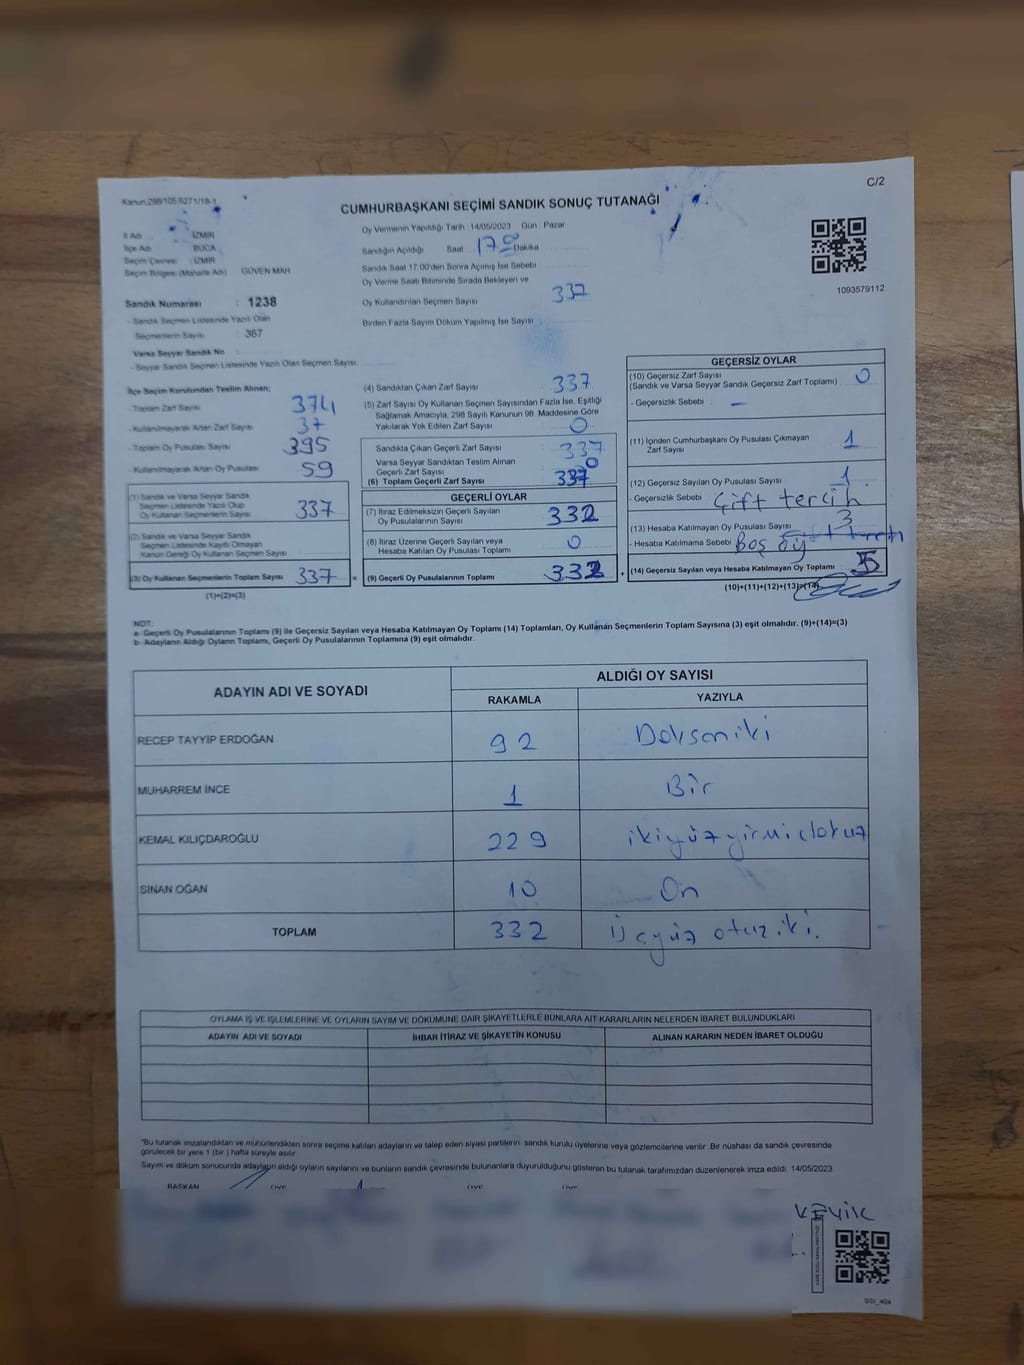 C/2
Kanun,298/105,6271/18-1
CUMHURBAŞKANI SEÇİMİ SANDIK SONUÇ TUTANAĞI
İl Adı : İZMİR
İlçe Adı : BUCA
Seçim Çevresi : İZMİR
Seçim Bölgesi (Mahalle Adı) GÜVEN MAH
Sandık Numarası : 1238
- Sandık Seçmen Listesinde Yazılı Olan
Seçmenlerin Sayısı : 367
Varsa Seyyar Sandık No
- Seyyar Sandık Seçmen Listesinde Yazılı Olan Seçmen Sayısı
Oy Vermenin Yapıldığı Tarih 14/05/2023 Gün : Pazar
Sandığın Açıldığı Saat 17 00 Dakika
Sandık Saat 17.00'den Sonra Açımış İse Sebebi
Oy Verme Saati Bitiminde Sırada Bekleyen ve
Oy Kullandırılan Seçmen Sayısı 337
Birden Fazla Sayım Döküm Yapılmış İse Sayısı :
1093579112
İlçe Seçim Kurulundan Teslim Alınan;
- Toplam Zarf Sayısı 374
- Kullanılmayarak Artan Zarf Sayısı 37
- Toplam Oy Pusulası Sayısı 395
- Kullanılmayarak Artan Oy Pusulası 59
(1) Sandık ve Varsa Seyyar Sandık
Seçmen Listesinde Yazılı Olup
Oy Kullanan Seçmenlerin Sayısı 337
(2) Sandık ve Varsa Seyyar Sandık
Seçmen Listesinde Kayıtlı Olmayan
Kanun Gereği Oy Kullanan Seçmen Sayısı
(3) Oy Kullanan Seçmenlerin Toplam Sayısı 337 =
(1)+(2)=(3)
(4) Sandıktan Çıkan Zarf Sayısı 337
(5) Zarf Sayısı Oy Kullanan Seçmen Sayısından Fazla İse, Eşitliği
Sağlamak Amacıyla, 298 Sayılı Kanunun 98. Maddesine Göre
Yakılarak Yok Edilen Zarf Sayısı 0
Sandıkta Çıkan Geçerli Zarf Sayısı 337
Varsa Seyyar Sandıktan Teslim Alınan
Geçerli Zarf Sayısı 0
(6) Toplam Geçerli Zarf Sayısı 337
GEÇERLİ OYLAR
(7) İtiraz Edilmeksizin Geçerli Sayılan
Oy Pusulalarının Sayısı 332
(8) İtiraz Üzerine Geçerli Sayılan veya
Hesaba Katılan Oy Pusulası Toplamı 0
(9) Geçerli Oy Pusulalarının Toplamı 332 +
GEÇERSİZ OYLAR
(10) Geçersiz Zarf Sayısı
(Sandık ve Varsa Seyyar Sandık Geçersiz Zarf Toplamı) 0
- Geçersizlik Sebebi : —
(11) İçinden Cumhurbaşkanı Oy Pusulası Çıkmayan
Zarf Sayısı 1
(12) Geçersiz Sayılan Oy Pusulası Sayısı 1
- Geçersizlik Sebebi Çift tercih
(13) Hesaba Katılmayan Oy Pusulası Sayısı 3
- Hesaba Katılmama Sebebi Boş oy
(14) Geçersiz Sayılan veya Hesaba Katılmayan Oy Toplamı 5
(10)+(11)+(12)+(13)=(14)
NOT:
a- Geçerli Oy Pusulalarının Toplamı (9) ile Geçersiz Sayılan veya Hesaba Katılmayan Oy Toplamı (14) Toplamları, Oy Kullanan Seçmenlerin Toplam Sayısına (3) eşit olmalıdır. (9)+(14)=(3)
b- Adayların Aldığı Oyların Toplamı, Geçerli Oy Pusulalarının Toplamına (9) eşit olmalıdır.
ADAYIN ADI VE SOYADI ALDIĞI OY SAYISI
RAKAMLA YAZIYLA
RECEP TAYYİP ERDOĞAN 92 Doksaniki
MUHARREM İNCE 1 Bir
KEMAL KILIÇDAROĞLU 229 ikiyüzyirmidokuz
SİNAN OĞAN 10 On
TOPLAM 332 üçyüz otuziki.
OYLAMA İŞ VE İŞLEMLERİNE VE OYLARIN SAYIM VE DÖKÜMÜNE DAİR ŞİKAYETLERLE BUNLARA AİT KARARLARIN NELERDEN İBARET BULUNDUKLARI
ADAYIN ADI VE SOYADI İHBAR İTİRAZ VE ŞİKAYETİN KONUSU ALINAN KARARIN NEDEN İBARET OLDUĞU
"Bu tutanak imzalandıktan ve mühürlendikten sonra seçime katılan adayların ve talep eden siyasi partilerin sandık kurulu üyelerine veya gözlemcilerine verilir. Bir nüshası da sandık çevresinde
görülecek bir yere 1 (bir ) hafta süreyle asılır
Sayım ve döküm sonucunda adayların aldığı oyların sayılarını ve bunların sandık çevresinde bulunanlara duyurulduğunu gösteren bu tutanak tarafımızdan düzenlenerek imza edildi. 14/05/2023
BAŞKAN ÜYE ÜYE ÜYE